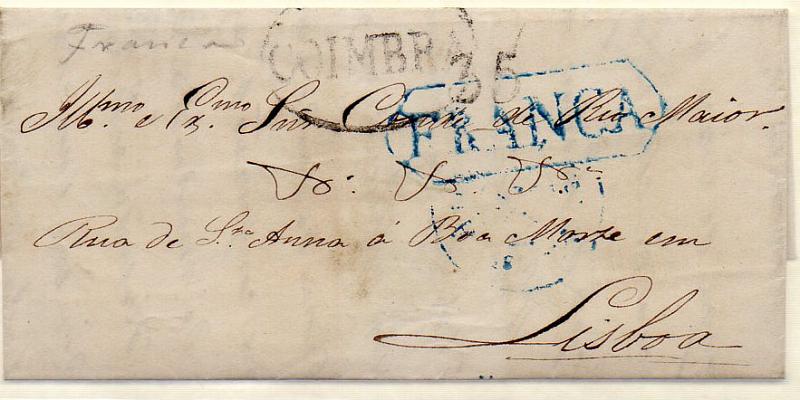 Franca
COIMBRA
35
FRANCA
Illmo. e Exmo. Snr. Conde de Rio Maior.
&. &. &.
Rua de S.ta Anna á Boa Morte em
Lisboa